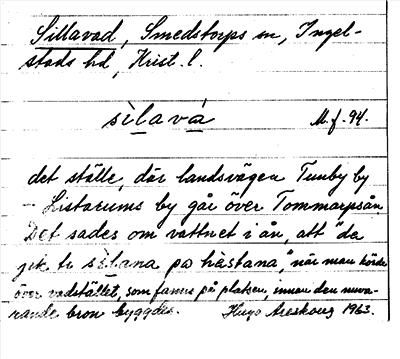 Sillavad, Smedstorps sn, Ingel-
stads hd, Krist. l.
sìlavá M.f. 94.
det ställe, där landsvägen Tunby by
- Listarums by går över Tommarpsån.
Det sades om vattnet i ån, att "da
jik ti sìlana pa hästana," när man körde
över vadstället, som fanns på platsen, innan den nuva-
rande bron byggdes. Hugo Areskoug 1963.